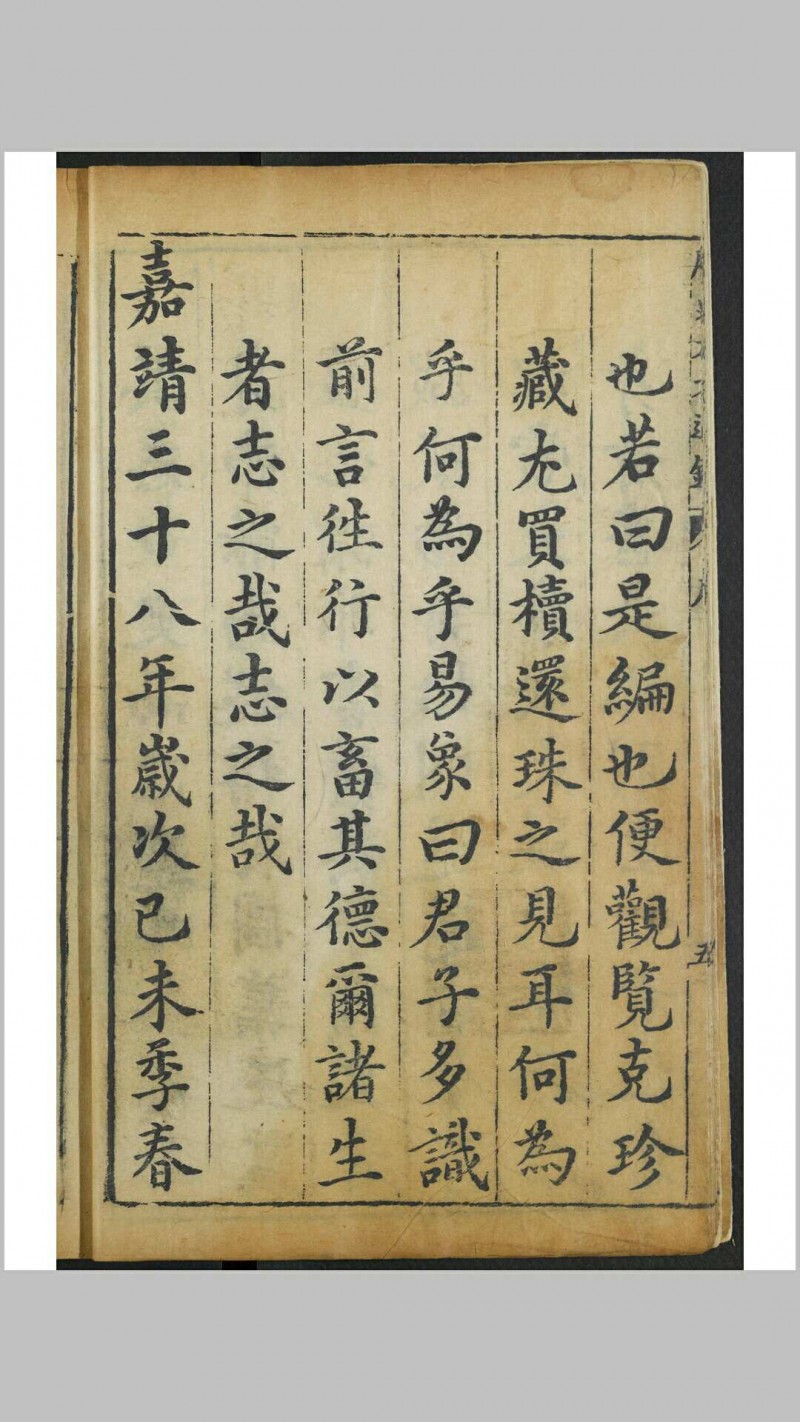 也若曰是編也便觀覽克珍
藏尤買櫝還珠之見耳何為
乎何為乎易象曰君子多識
前言徃行以畜其德爾諸生
者志之哉志之哉
嘉靖三十八年嵗次己未季春
五